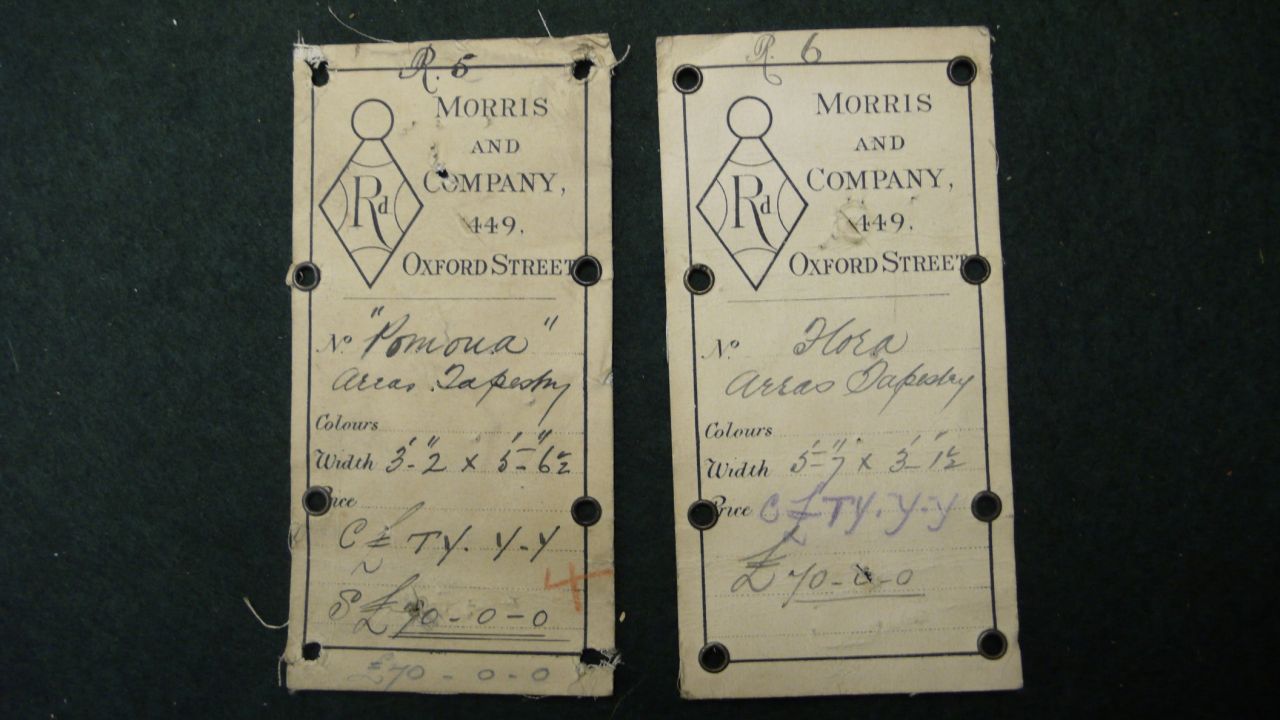 R. 5
MORRIS
AND
COMPANY,
449.
OXFORD STREET
Rd
No "Pomona"
Arras Tapestry
Colours
Width 3'-2" x 5'-6½"
Price
C £ TY. Y-Y
S £70-0-0
4
£70-0-0
R. 6
MORRIS
AND
COMPANY,
449.
OXFORD STREET
Rd
No Flora
Arras Tapestry
Colours
Width 5'-7" x 3'-1½"
Price C £ TY. Y-Y
£70-0-0